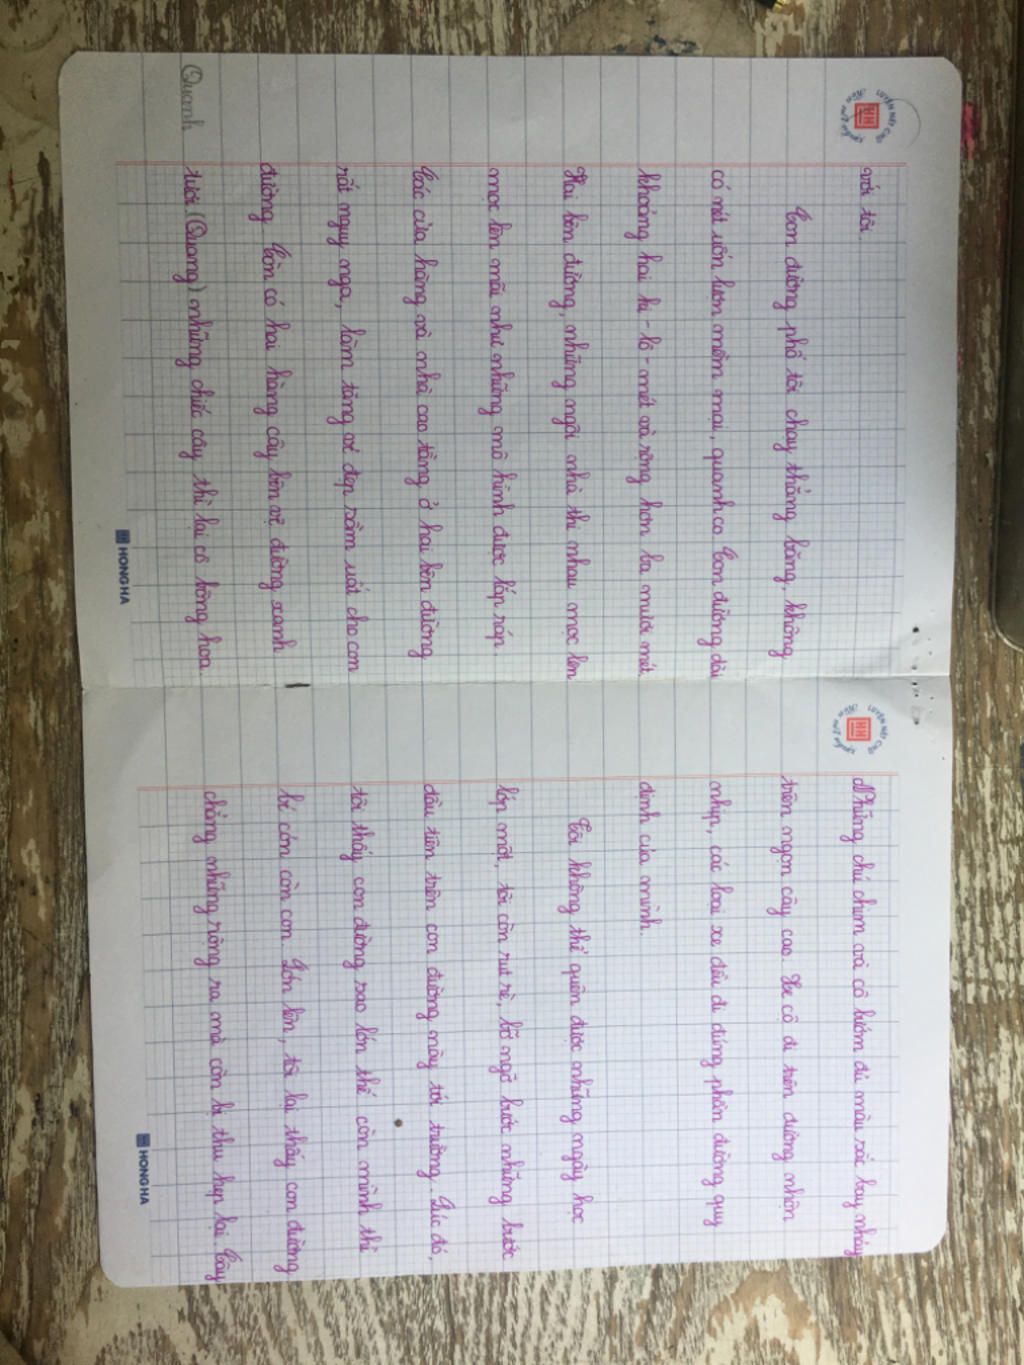 LUYỆN NÉT CHỮ
HH
với tôi.
Con đường phố tôi chạy thẳng băng, không
có nét uốn lượn mềm mại, quanh co. Con đường dài
khoảng hai ki-lô-mét và rộng hơn ba mươi mét.
Hai bên đường, những ngôi nhà thi nhau mọc lên
mọc lên mãi như những mô hình được lắp ráp.
Các cửa hàng và nhà cao tầng ở hai bên đường
rất nguy nga, làm tăng vẻ đẹp sầm uất cho con
đường. Còn có hai hàng cây bên vệ đường xanh
Quanh tươi. (Quang) những chiếc cây thì lại có bông hoa.
HONG HA
LUYỆN NÉT CHỮ
HH
Những chú chim và cô bướm đủ màu sắc bay nhảy
trên ngọn cây cao. Xe cộ đi trên đường nhộn
nhịp, các loại xe đều đi đúng phần đường quy
định của mình.
Tôi không thể quên được những ngày học
lớp một, tôi còn rụt rè, bỡ ngỡ bước những bước
đầu tiên trên con đường này tới trường. Lúc đó,
tôi thấy con đường sao lớn thế còn mình thì
bé cỏn còn con. Lớn lên, tôi lại thấy con đường
chẳng những rộng ra mà còn bị thu hẹp lại. Cây
HONG HA